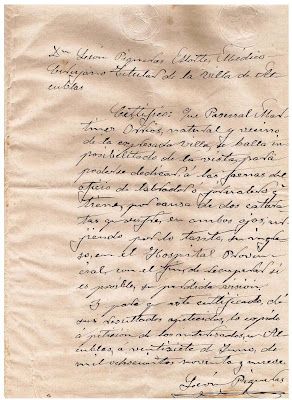 Dn León Piqueras Motta, Médico
Cirujano Titular de la villa de Al
cublas
Certifico: Que Pascual Mar
tinez Orios, natural y vecino
de la expresada villa, se halla im
posibilitado de la vista, para
poderse dedicar á las faenas del
oficio de labrador ó jornalero q.
tiene, por causa de dos catara
tas que sufre en ambos ojos, ur
jiendo por lo tanto, su ingre
so, en el Hospital Provin
cial con el fin de recuperar si
es posible, su perdida visión.
Y para q este certificado, dé
sus resultados apetecidos, lo expido
á peticion de los interesados, en Al
cublas, a veintisiete de Junio, de
mil ochocientos noventa y nueve.
León Piqueras